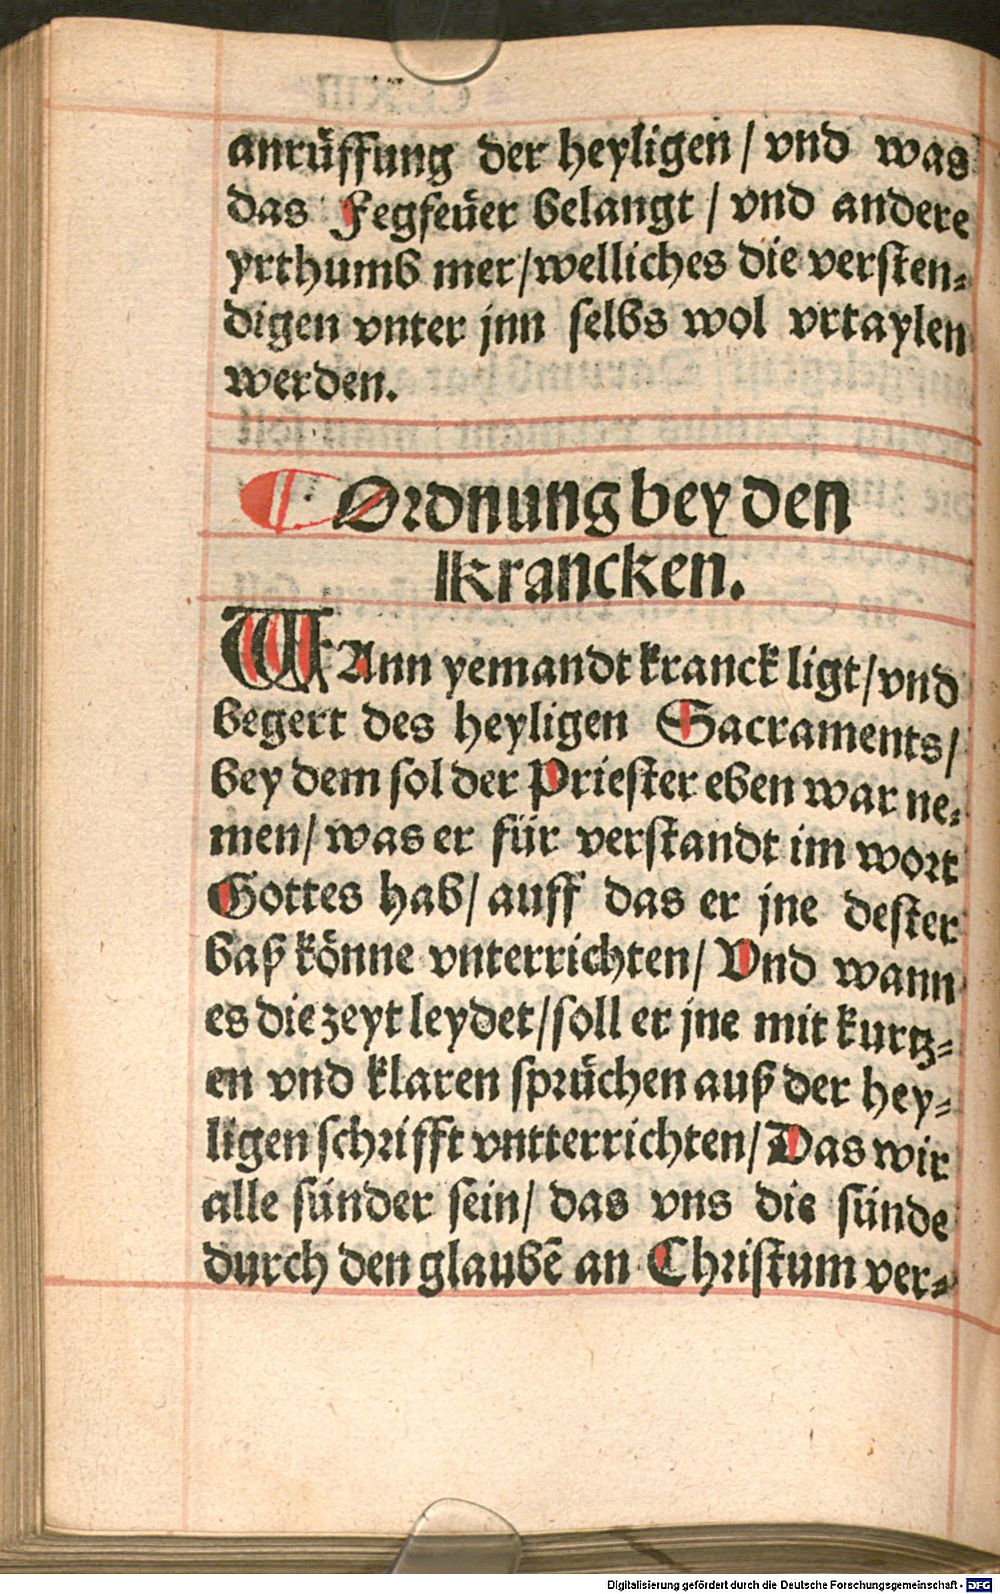 anrüffung der heyligen / vnd was
das Fegfeüer belangt / vnd andere
yrthumb mer / welliches die versten⸗
digen vnter jnn selbs wol vrtaylen
werden.
Ordnung bey den
Krancken.
WAnn yemandt kranck ligt / vnd
begert des heyligen Sacraments /
bey dem sol der Priester eben war ne⸗
men / was er für verstandt im wort
Gottes hab / auff das er jne dester
baß könne vnterrichten / Vnd wann
es die zeyt leydet / soll er jne mit kurtz⸗
en vnd klaren sprüchen auß der hey⸗
ligen schrifft vntterrichten / Das wir
alle sünder sein / das vns die sünde
durch den glaubē an Christum ver⸗
Digitalisierung gefördert durch die Deutsche Forschungsgemeinschaft - DFG